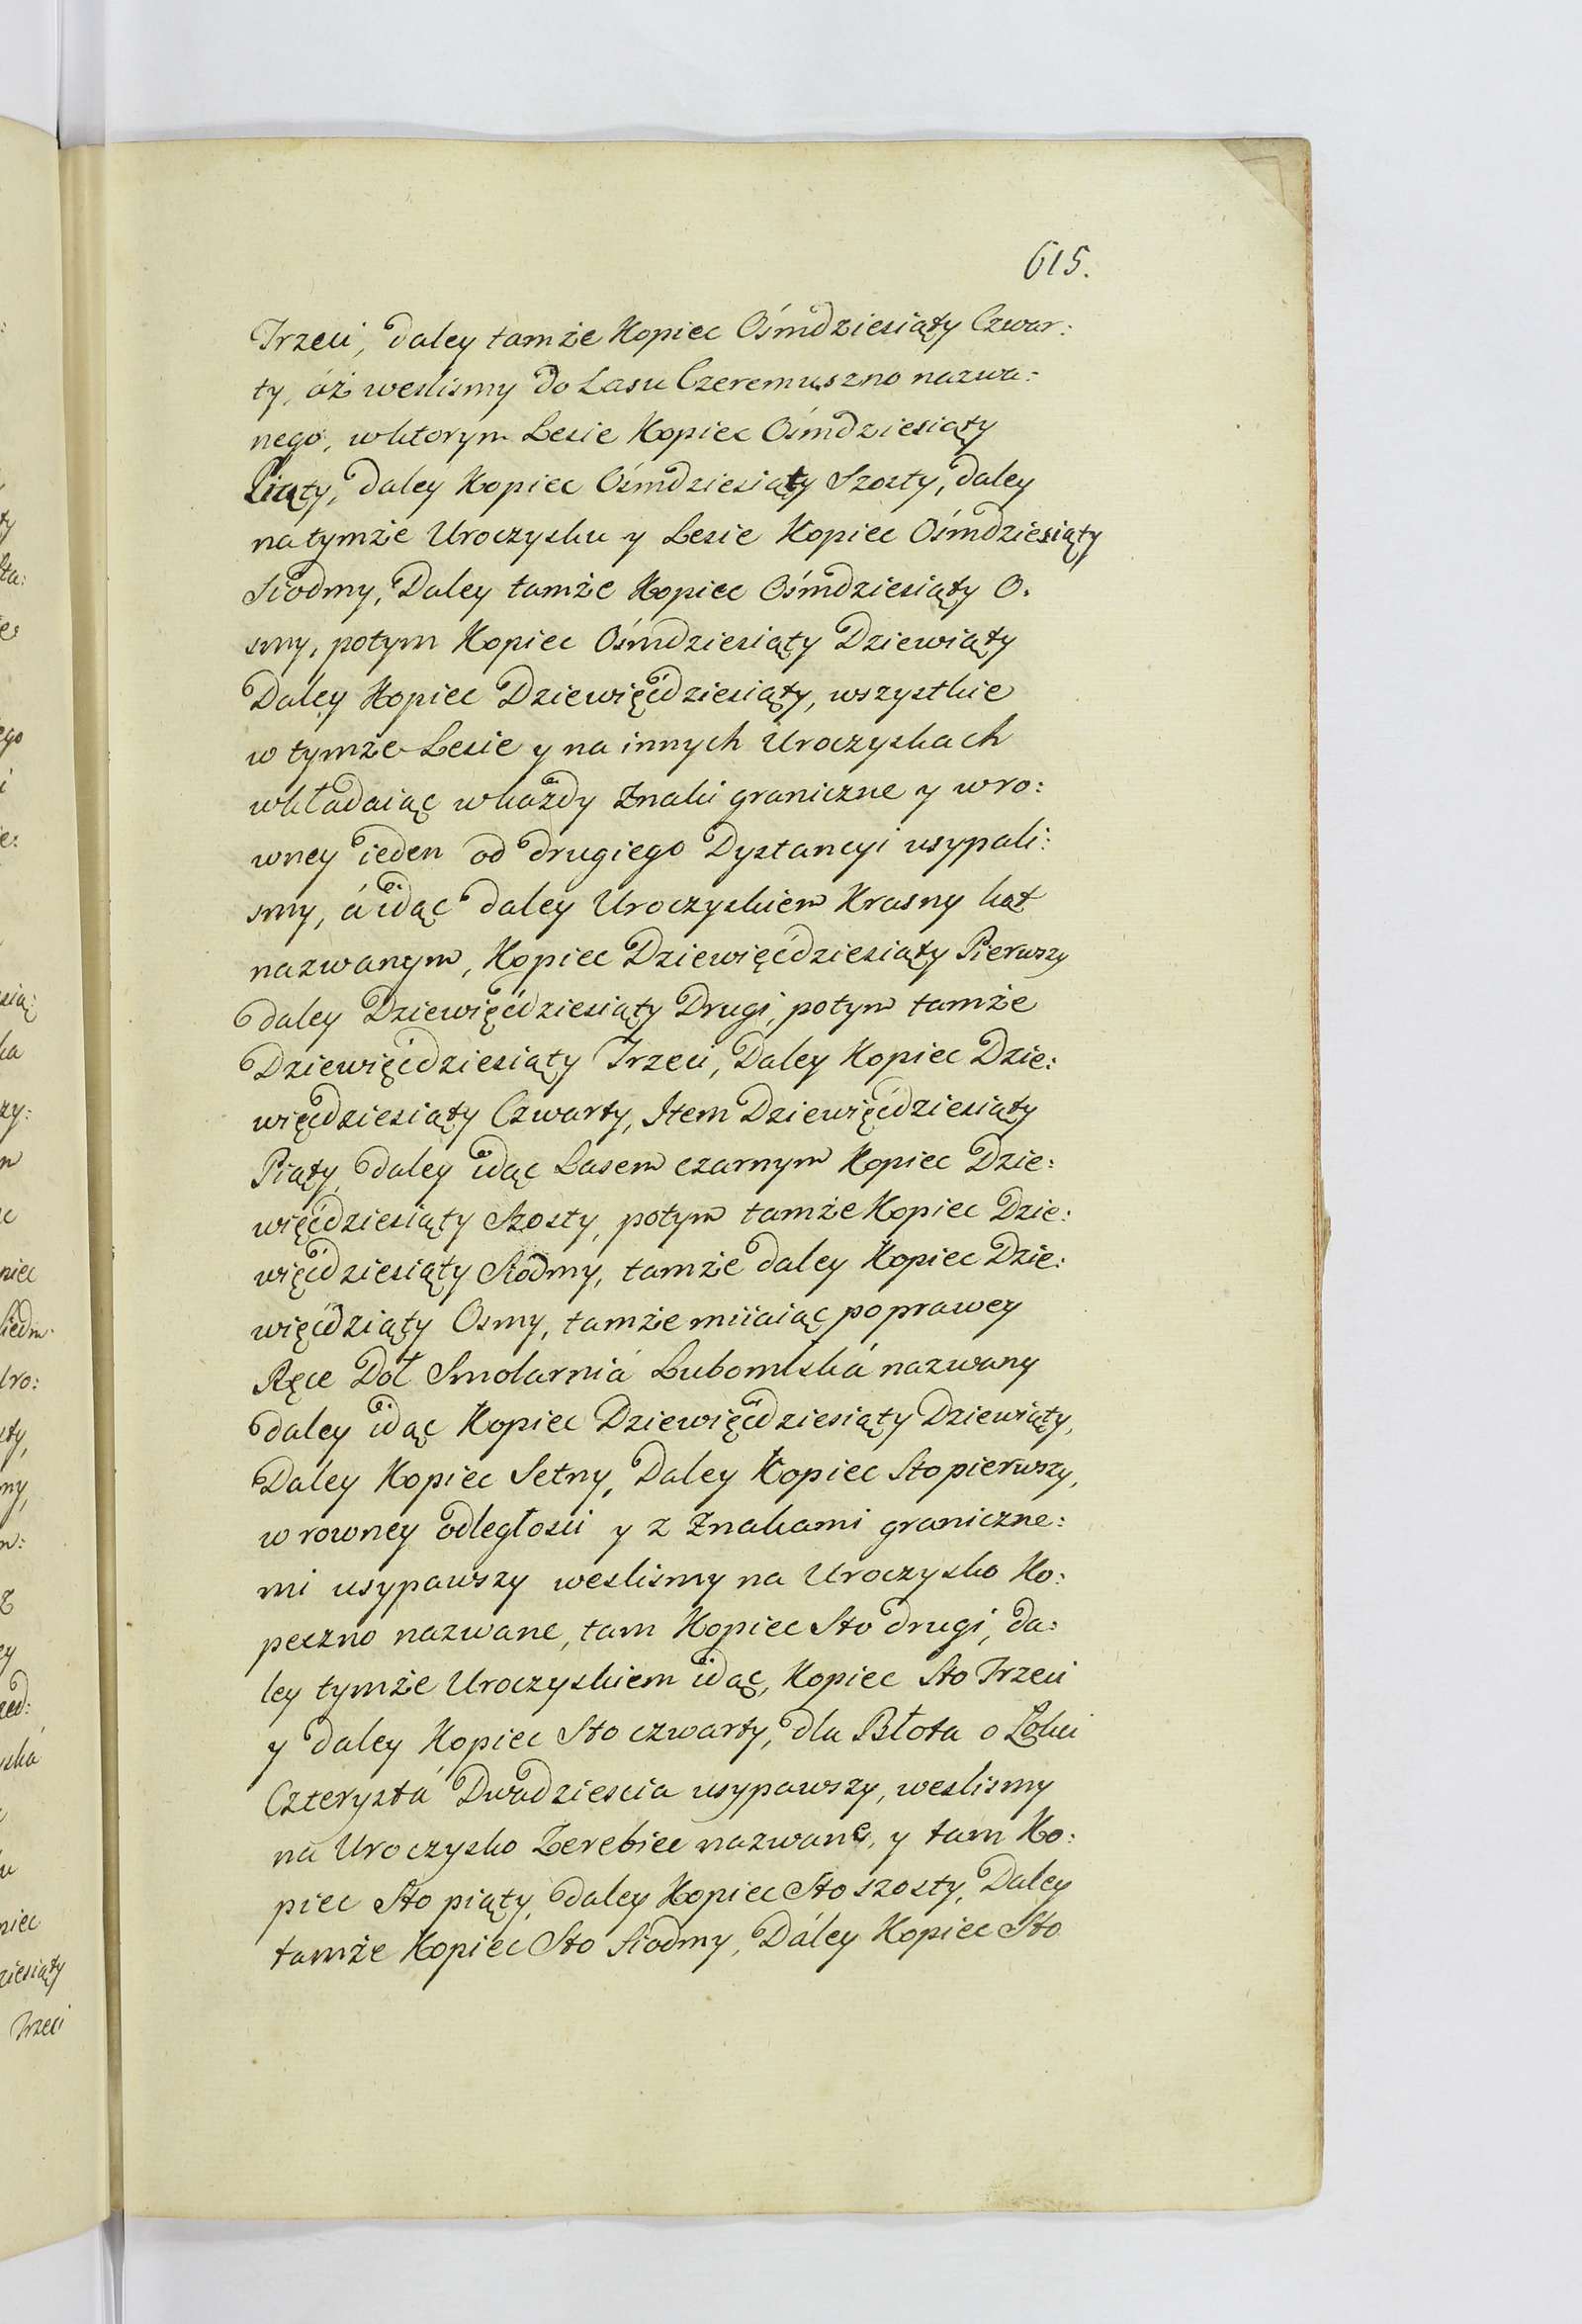 615.
Trzeci, daley tamże Kopiec Ośmdziesiąty Czwar:
ty, áż weslismy do Lasu Czeremuszno nazwa:
nego, wktorym Lesie Kopiec Ośmdziesiąty
Piąty, daley Kopiec Ośmdziesiąty Szosty, daley
natymże Uroczysku y Lesie Kopiec Ośmdziesiąty
Siodmy, Daley tamże Kopiec Ośmdziesiąty O.
smy, potym Kopiec Ośmdziesiąty Dziewiąty
Daley Kopiec Dziewięćdziesiąty, wszystkie
w tymże Lesie y na innych Uroczyskach
wkładaiąc wkażdy Znaki graniczne y wro:
wney ieden od drugiego Dystancyi usypali:
smy, á idąc daley Uroczyskiem Krasny kąt
nazwanym, Kopiec Dziewięćdziesiąty Pierwszy
daley Dziewięćdziesiąty Drugi, potym tamże
Dziewięćdziesiąty Trzeci, Daley Kopiec Dzie:
więćdziesiąty Czwarty, Item Dziewięćdziesiąty
Piąty, daley idąc Lasem czarnym Kopiec Dzie:
więćdziesiąty Szosty, potym tamże Kopiec Dzie:
więćdziesiąty Siodmy, tamże daley Kopiec Dzie:
więćdziąty Osmy, tamże miiaiąc poprawey
Ręce Doł Smolarniá Lubomlská nazwany
daley idąc Kopiec Dziewięćdziesiąty Dziewiąty,
Daley Kopiec Setny, Daley Kopiec Stopierwszy,
w rowney odległosci y z Znakami graniczne:
mi usypawszy weslismy na Uroczysko Ko:
peczno nazwane, tam Kopiec Sto drugi, da:
ley tymże Uroczyskiem idąc, Kopiec Sto Trzeci
y daley Kopiec Sto czwarty, dla Błota o Łokci
Czterystá Dwadziescia usypawszy, weslismy
na Uroczysko Zerebiec nazwane, y tam Ko:
piec Sto piąty, daley Kopiec Sto szosty, Daley
tamże Kopiec Sto Siodmy, Dáley Kopiec Sto